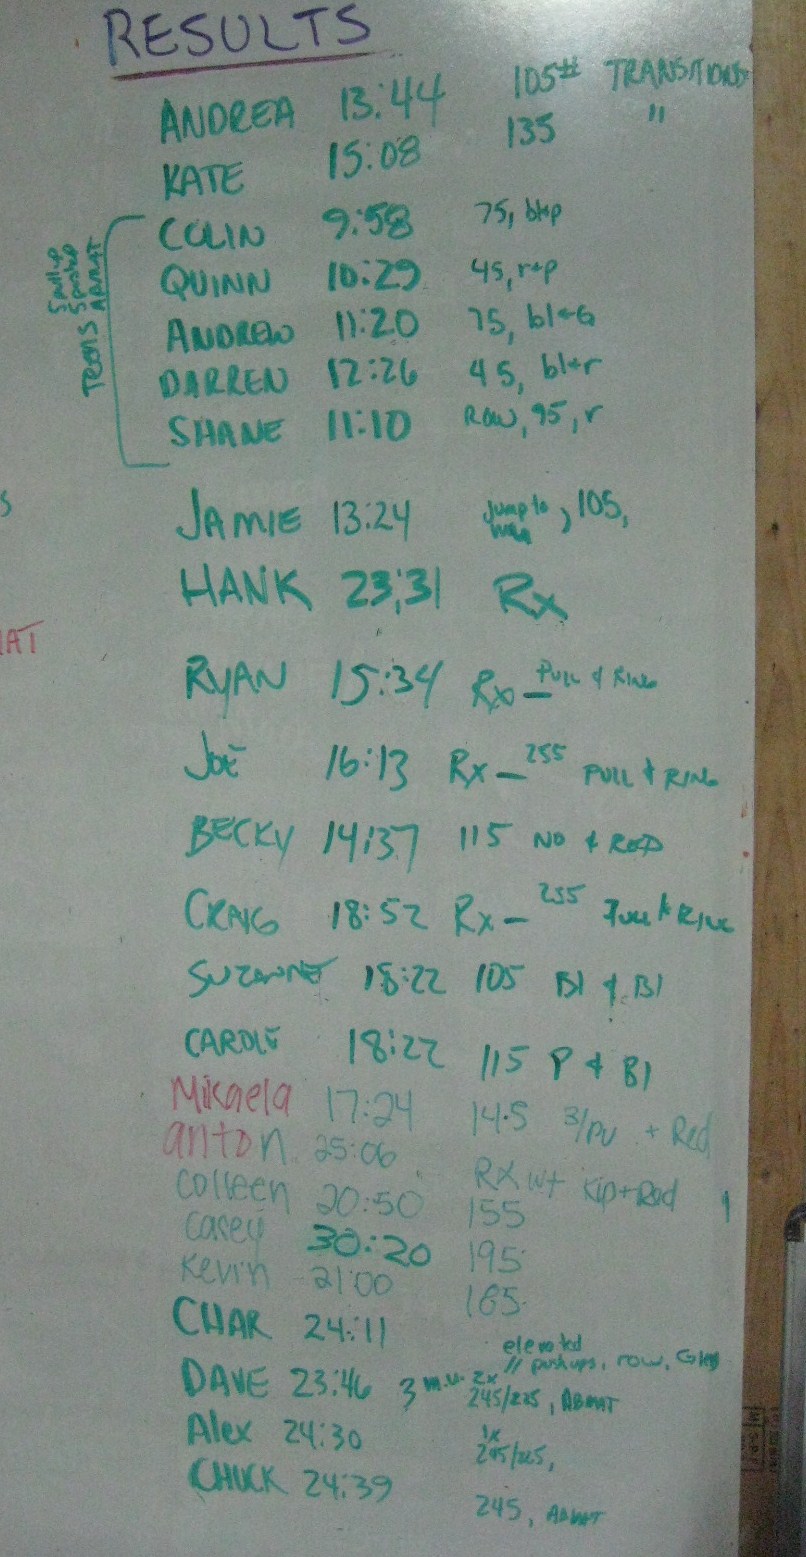 RESULTS
ANDREA 13:44 105# TRANSITIONS
KATE 15:08 135 "
Teens 5 pullup 5 pushup ABMAT
COLIN 9:58 75, bl+p
QUINN 10:29 45, r+p
ANDREW 11:20 75, bl+G
DARREN 12:26 45, bl+r
SHANE 11:10 ROW, 95, r
JAMIE 13:24 Jump to, 105,
HANK 23:31 Rx
AT
RYAN 15:34 Rx - PULL & RING
JOE 16:13 Rx - 255 PULL & RING
BECKY 14:37 115 NO & RED
CRAIG 18:52 Rx - 255 PULL & RING
SUZANNE 18:22 105 Bl & Bl
CAROLE 18:22 115 P & Bl
Mikaela 17:24 145 3/PU + Red
anton 25:06 RX w+ Kip+Red
Colleen 20:50 155
Casey 30:20 195
Kevin 21:00 165
CHAR 24:11 elevated // pushups, row,
DAVE 23:46 3 m.u. 2x 245/225, ABMAT
Alex 24:30 1x
CHUCK 24:39 245, ABMAT